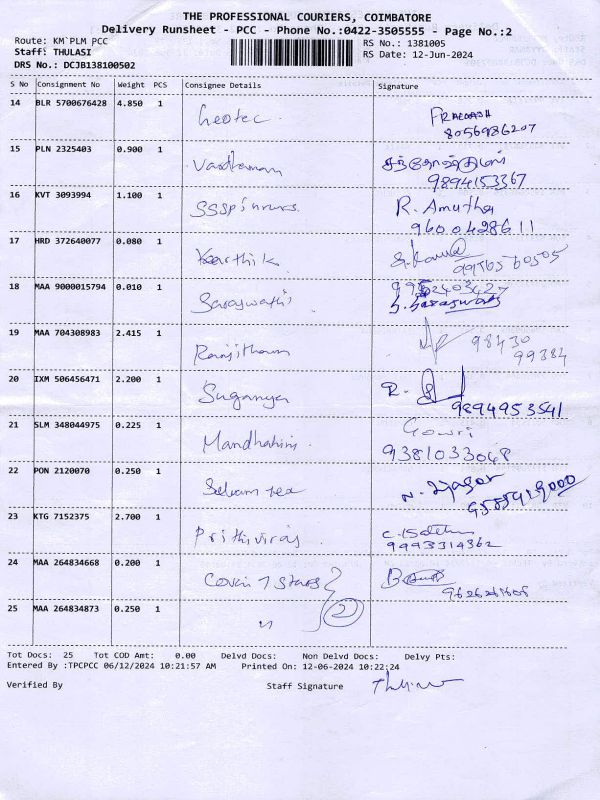 THE PROFESSIONAL COURIERS, COIMBATORE
Delivery Runsheet - PCC - Phone No.:0422-3505555 - Page No.:2
Route: KM`PLM PCC RS No.: 1381005
Staff: THULASI RS Date: 12-Jun-2024
DRS No.: DCJB138100502
S No Consignment No Weight PCS Consignee Details Signature
14 BLR 5700676428 4.850 1 Geotec. PRAKASH
8056986207
15 PLN 2325403 0.900 1 Vardhaman
9894153367
16 KVT 3093994 1.100 1 R. Amutha
9600428611
17 HRD 372640077 0.080 1 Karthik
18 MAA 9000015794 0.010 1 Saraswathi
S. Saraswathi
19 MAA 704308983 2.415 1 Ranjitham 98430
99384
20 IXM 506456471 2.200 1 Suganya R.
9894953541
21 SLM 348044975 0.225 1 Gowri
9381033048
22 PON 2120070 0.250 1 Selvam tex
23 KTG 7152375 2.700 1 Prithiviraj
9993314362
24 MAA 264834668 0.200 1
25 MAA 264834873 0.250 1 " 2
Tot Docs: 25 Tot COD Amt: 0.00 Delvd Docs: Non Delvd Docs: Delvy Pts:
Entered By :TPCPCC 06/12/2024 10:21:57 AM Printed On: 12-06-2024 10:22:24
Verified By Staff Signature